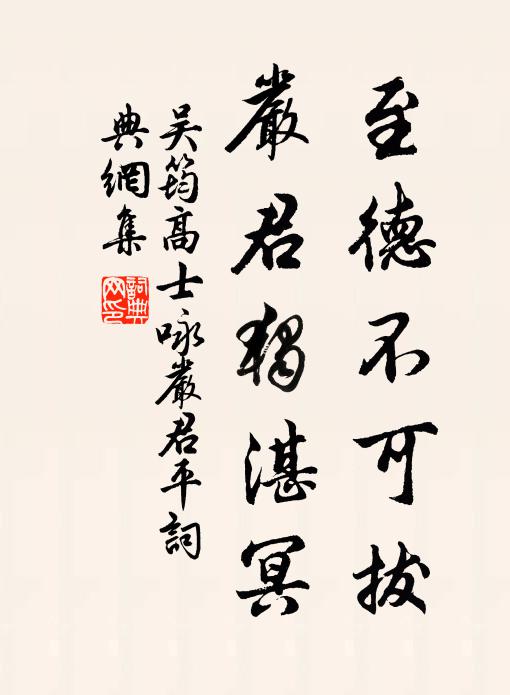 至德不可拔
嚴君獨湛冥
吴筠高士咏嚴君平詞
典網集
詞典
网印